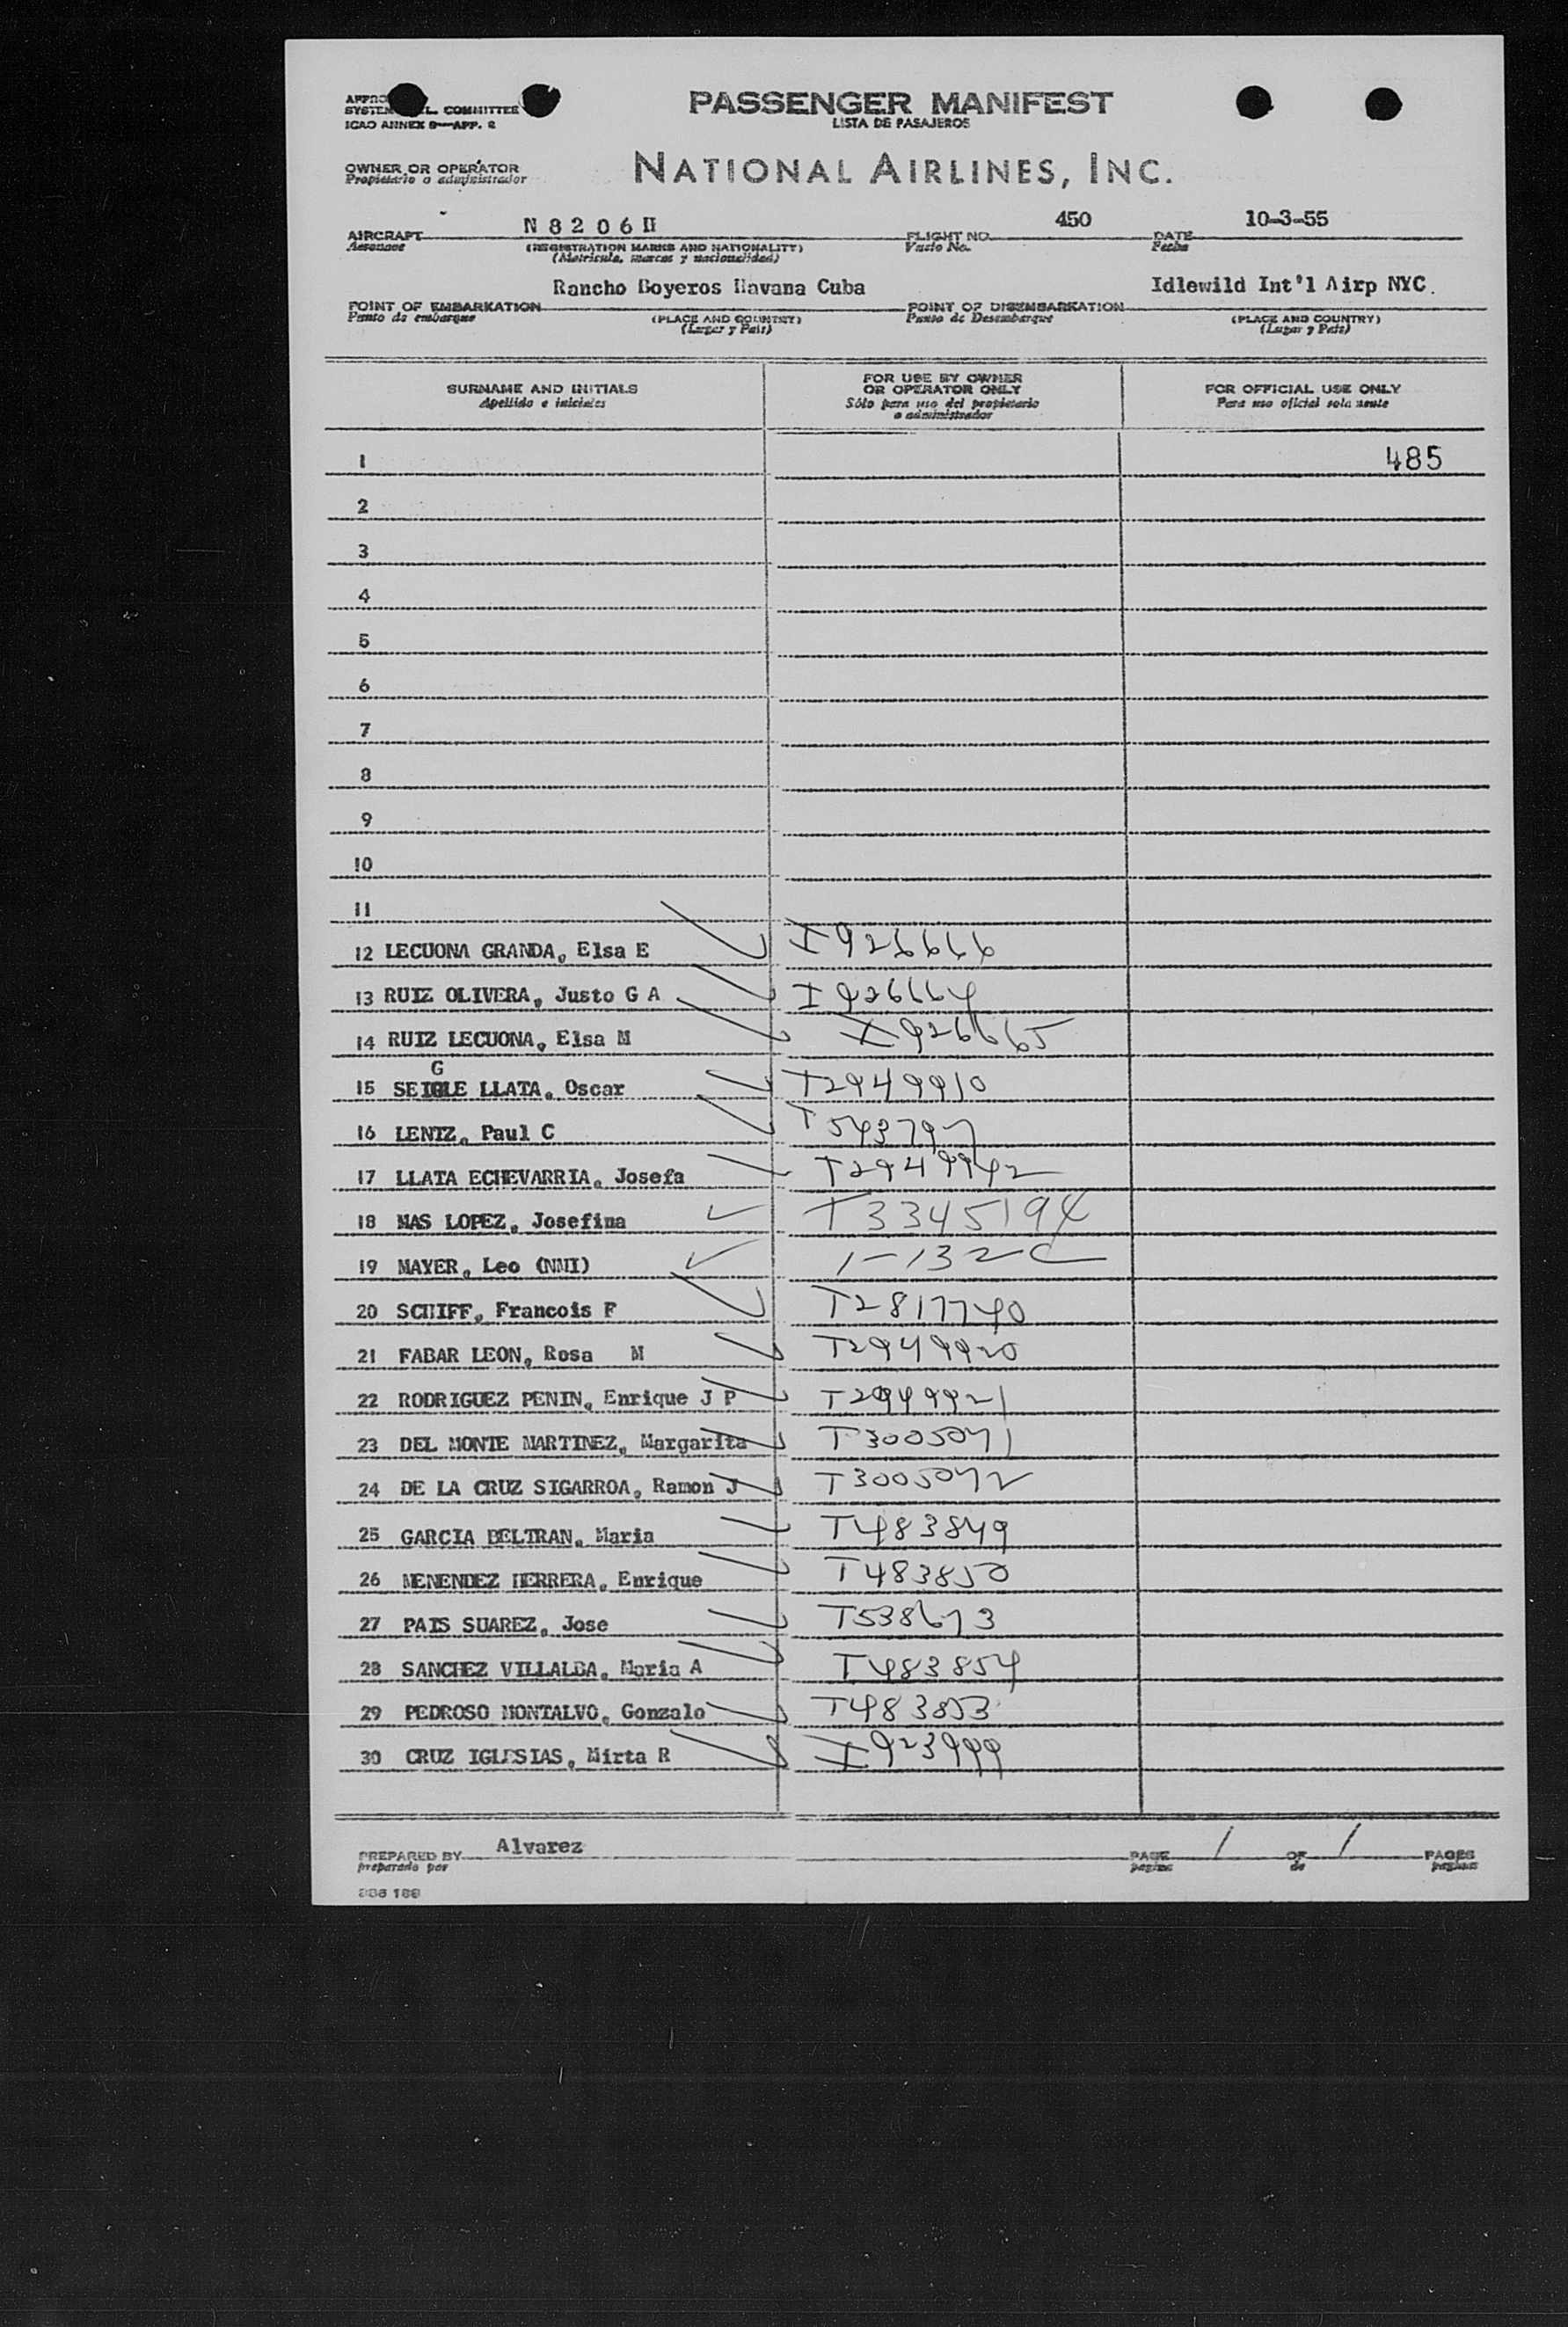 PASSENGER MANIFEST
LISTA DE PASAJEROS
COMMITTEE
ICAO ANNEX 9—APP. 2
OWNER OR OPERATOR
Propietario o administrador
NATIONAL AIRLINES, INC.
AIRCRAFT N 8 2 0 6 H FLIGHT NO. 450 DATE 10-3-55
Aeronave (REGISTRATION MARKS AND NATIONALITY) Vuelo No. Fecha
(Matricula, marcas y nacionalidad)
POINT OF EMBARKATION Rancho Boyeros Havana Cuba POINT OF DISEMBARKATION Idlewild Int'l Airp NYC.
Punto de embarque (PLACE AND COUNTRY) Punto de Desembarque (PLACE AND COUNTRY)
(Lugar y Pais) (Lugar y Pais)
SURNAME AND INITIALS
Apellido e iniciales
FOR USE BY OWNER
OR OPERATOR ONLY
Sólo para uso del propietario
o administrador
FOR OFFICIAL USE ONLY
Para uso oficial solamente
1 485
2
3
4
5
6
7
8
9
10
11
12 LECUONA GRANDA, Elsa E I926666
13 RUIZ OLIVERA, Justo G A I926664
14 RUIZ LECUONA, Elsa M I926665
G
15 SEIGLE LLATA, Oscar T2949910
16 LENTZ, Paul C T543797
17 LLATA ECHEVARRIA, Josefa T2949942
18 MAS LOPEZ, Josefina T3345194
19 MAYER, Leo (NMI) 1-132C
20 SCHIFF, Francois F T2817740
21 FABAR LEON, Rosa M T2949920
22 RODRIGUEZ PENIN, Enrique J P T2949921
23 DEL MONTE MARTINEZ, Margarita T3005071
24 DE LA CRUZ SIGARROA, Ramon J T3005072
25 GARCIA BELTRAN, Maria T483849
26 MENENDEZ HERRERA, Enrique T483850
27 PAIS SUAREZ, Jose T538673
28 SANCHEZ VILLALBA, Maria A T483854
29 PEDROSO MONTALVO, Gonzalo T483853
30 CRUZ IGLESIAS, Mirta R I923999
PREPARED BY Alvarez PAGE 1 OF 1 PAGES
preparado por pagina de paginas